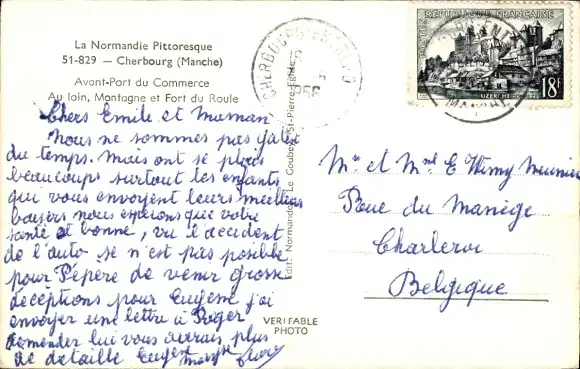 La Normandie Pittoresque
51-829 — Cherbourg (Manche)
Avant-Port du Commerce
Au loin, Montagne et Fort du Roule
Chers Emile et Maman
Nous ne sommes pas gâtés
du temps. Mais ont se plais
beaucoups surtout les enfants
qui vous envoyent leurs meilleurs
baisers nous esperons que votre
santé et bonne, vu l'accident
de l'auto se n'est pas posible
pour Pépère de venir grosse
déceptions pour Eugène j'ai
envoyer une lettre à Roger
demender lui vous aurais plus
de detaille
Edit. Normandes Le Goubey, St-Pierre-Église
VERITABLE
PHOTO
CHERBOURG
POSTES
RÉPUBLIQUE FRANÇAISE
UZERCHE
18F
MANCHE
Mr et Mme E
Rue du Manège
Charleroi
Belgique